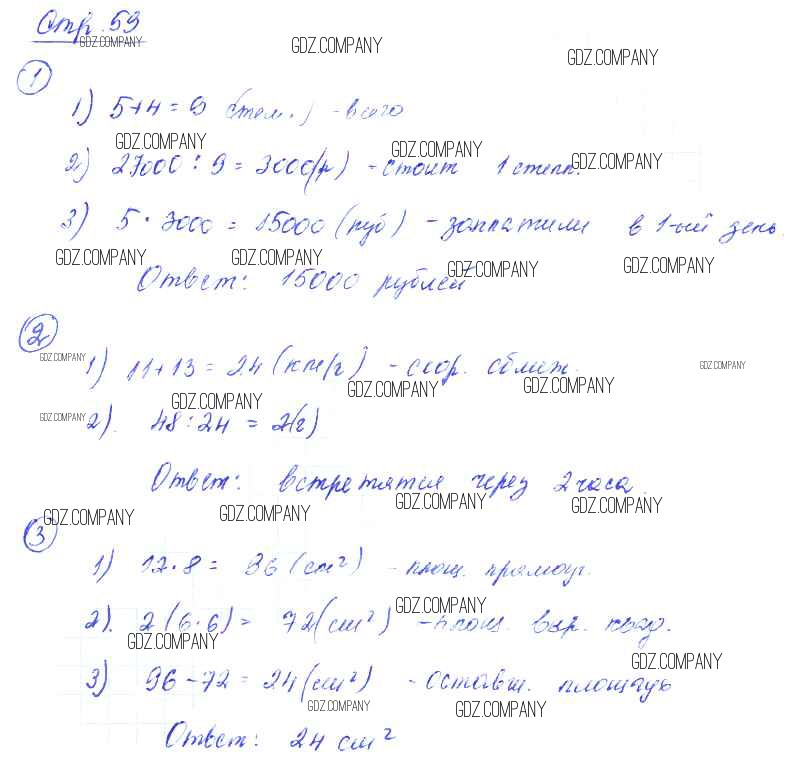 Стр. 59
GDZ.COMPANY GDZ.COMPANY GDZ.COMPANY
1
1) 5+4=9 (тел.) - всего
GDZ.COMPANY GDZ.COMPANY GDZ.COMPANY
2) 27000 : 9 = 3000(р) - стоит 1 степл.
3) 5 · 3000 = 15000 (руб) - заплатили в 1-ый день.
GDZ.COMPANY GDZ.COMPANY GDZ.COMPANY GDZ.COMPANY
Ответ: 15000 рублей
2
GDZ.COMPANY GDZ.COMPANY
1) 11+13 = 24 (км/ч) - скор. сближ.
GDZ.COMPANY GDZ.COMPANY GDZ.COMPANY GDZ.COMPANY
2). 48:24 = 2(ч)
Ответ: встретятся через 2 часа.
GDZ.COMPANY GDZ.COMPANY GDZ.COMPANY GDZ.COMPANY
3
1) 12·8 = 96 (см²) - площ. прямоуг.
GDZ.COMPANY
2). 2(6·6) = 72(см²) - площ. выр. квад.
GDZ.COMPANY GDZ.COMPANY
3) 96-72=24(см²) - оставш. площадь
GDZ.COMPANY GDZ.COMPANY
Ответ: 24 см²